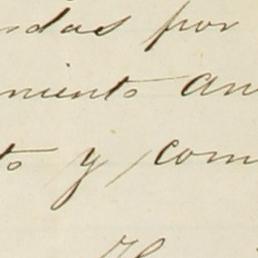 ndas por
miento an
to y com